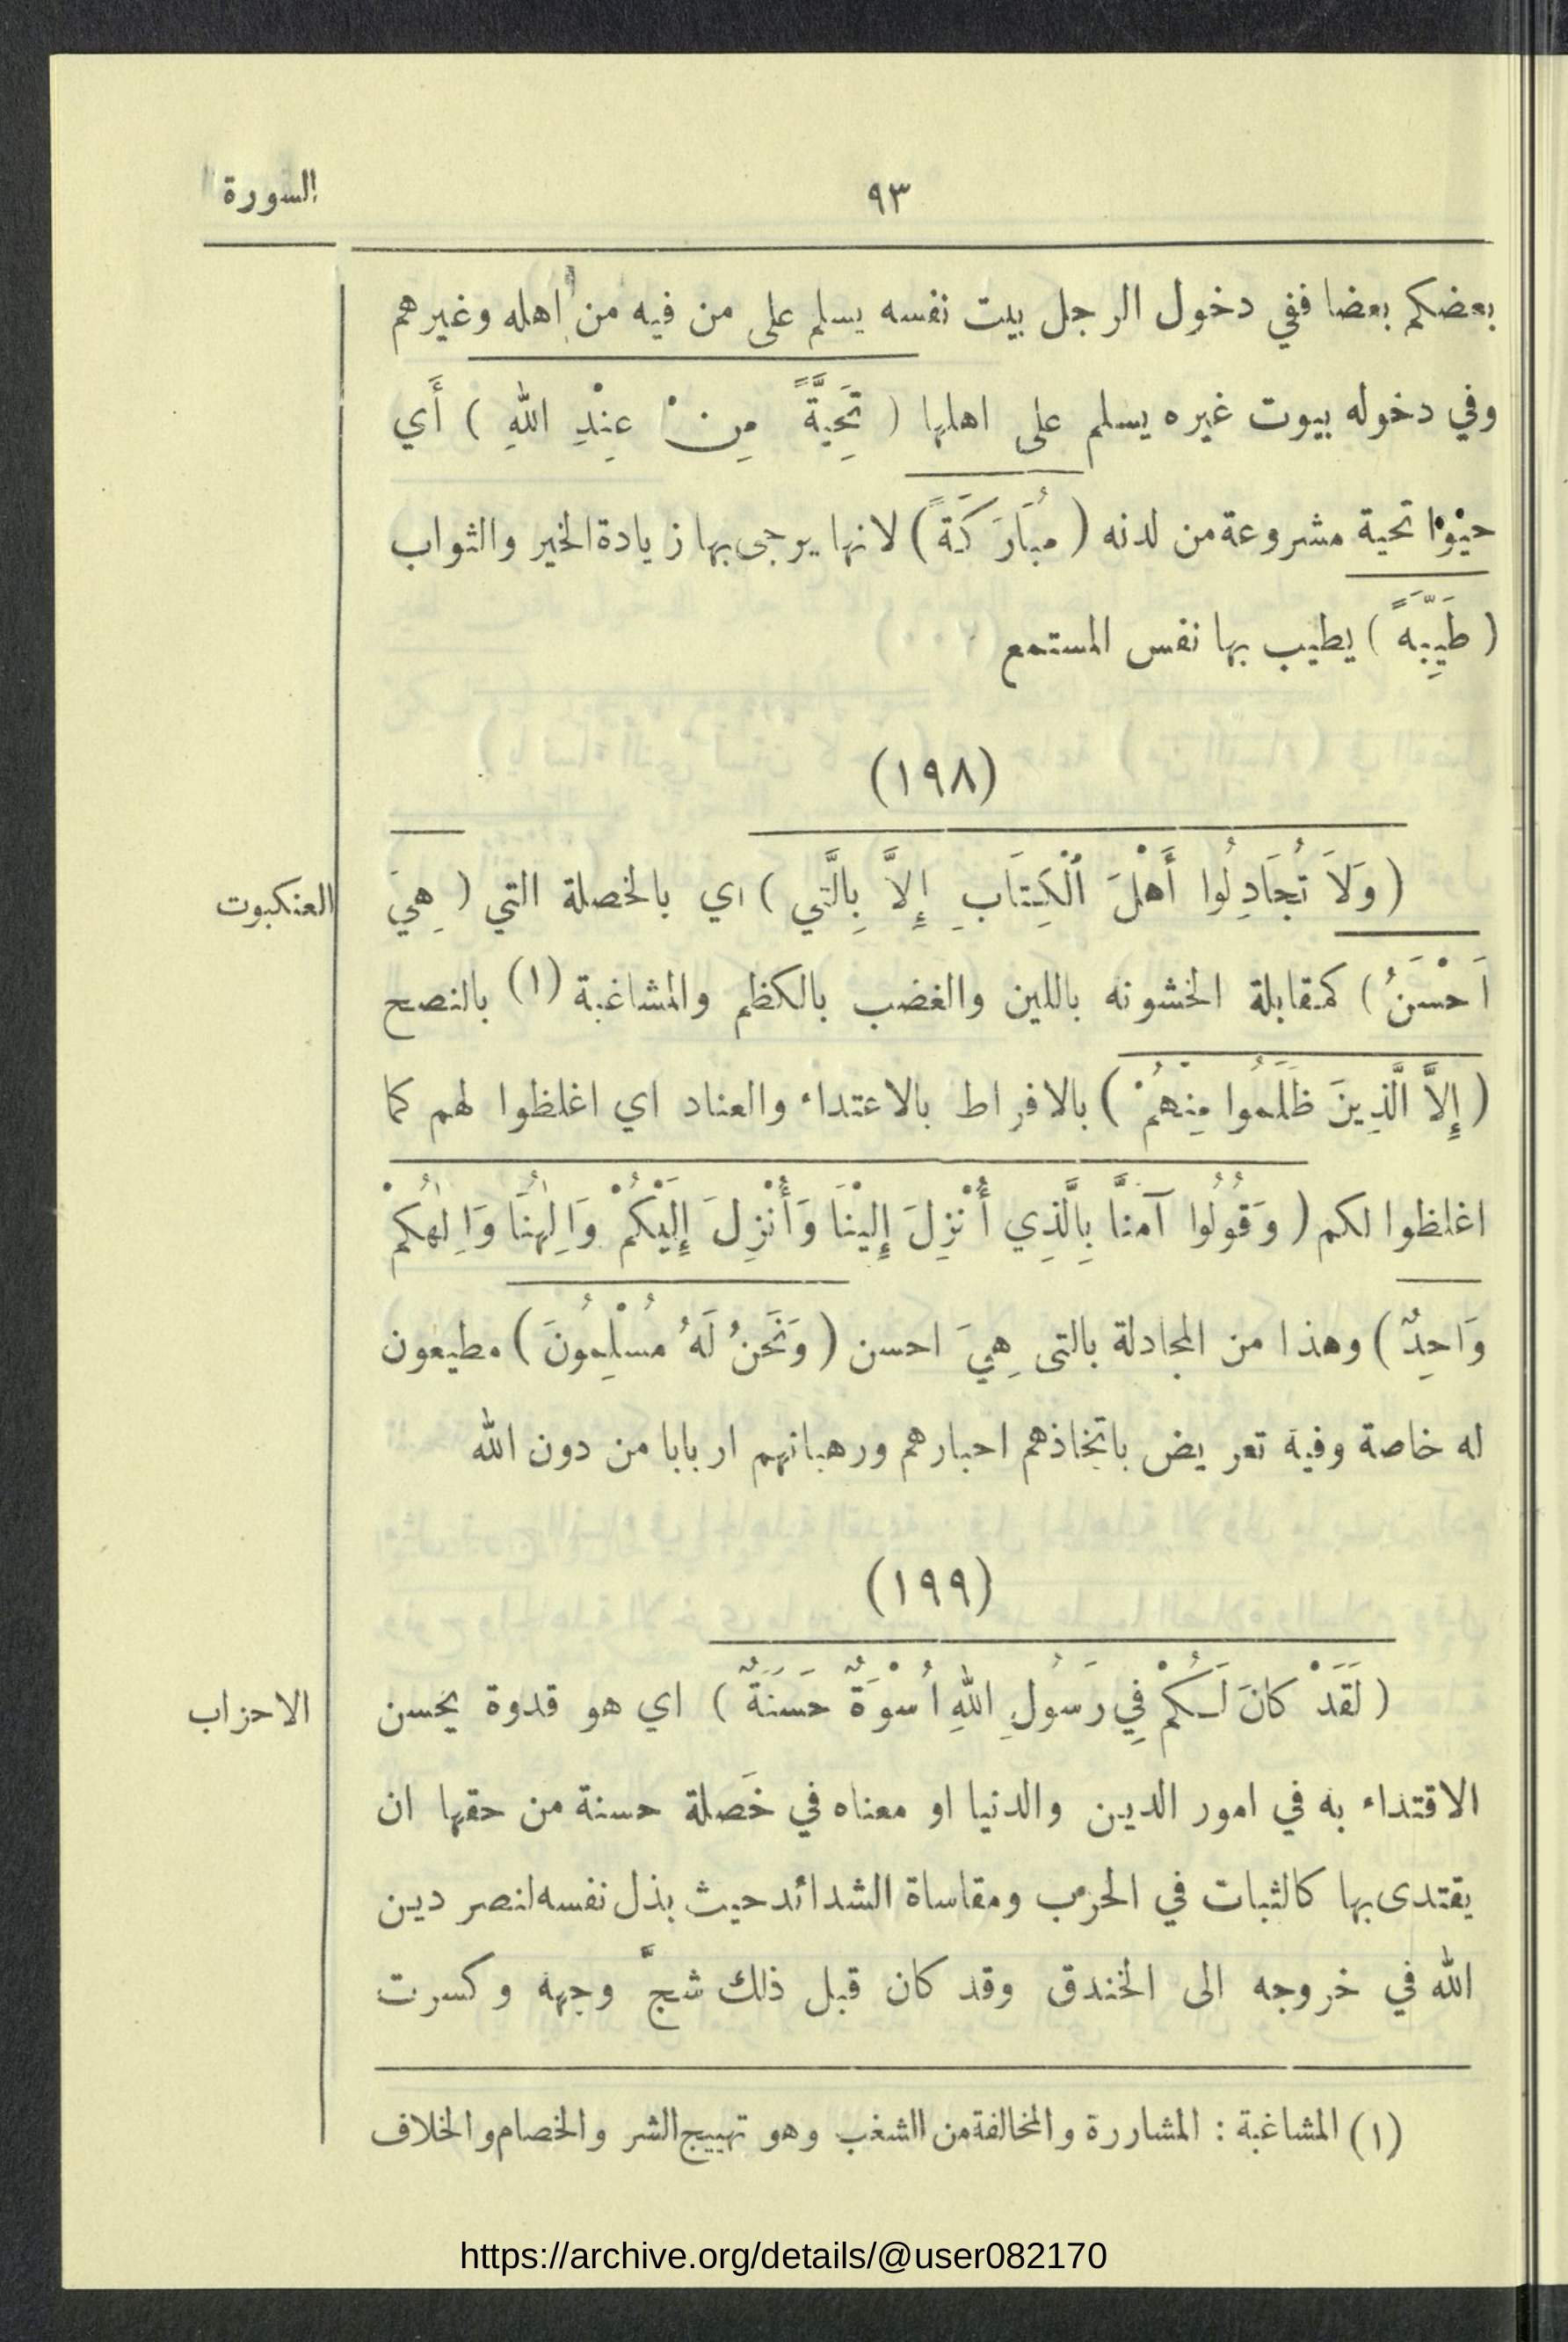 السورة
٩٣
بعضكم بعضا ففي دخول الرجل بيت نفسه يسلم على من فيه من اهله وغيرهم
وفي دخوله بيوت غيره يسلم على اهلها ( تَحِيَّةً مِنْ عِنْدِ اللهِ ) أَي
حيْوْا تحية مشروعة من لدنه ( مُبَارَكَةً ) لانها يرجى بها زيادة الخير والثواب
( طَيِّبَةً ) يطيب بها نفس المستمع
(١٩٨)
العنكبوت
( وَلاَ تُجَادِلُوا أَهْلَ ٱلْكِتَابِ إِلاَّ بِالَّتي ) اي بالخصلة التي ( هِيَ
اَحْسَنُ ) كمقابلة الخشونه باللين والغضب بالكظم والمشاغبة (١) بالنصح
( إِلاَّ الَّذِينَ ظَلَمُوا مِنْهُمْ ) بالافراط بالاعتداء والعناد اي اغلظوا لهم كما
اغلظوا لكم ( وَقُولُوا آمنَّا بِالَّذِي أُنْزِلَ إِلَيْنَا وَأُنْزِلَ إِلَيْكُمْ وَاِلٰهُنَا وَاِلٰهُكمْ
وَاحِدٌ ) وهذا من المجادلة بالتى هِيَ احسن ( وَنَحَنُ لَهُ مُسْلِمُونَ ) مطيعون
له خاصة وفية تعريض باتخاذهم احبارهم ورهبانهم اربابا من دون الله
(١٩٩)
الاحزاب
( لَقَدْ كانَ لَكُمْ فِي رَسُولِ اللهِ أُسْوَةٌ حَسَنَةٌ ) اي هو قدوة يحسن
الاقتداء به في امور الدين والدنيا او معناه في خَصلة حسنة من حقها ان
يقتدى بها كالثبات في الحرب ومقاساة الشدائد حيث بذل نفسه لنصر دين
الله في خروجه الى الخندق وقد كان قبل ذلك شجَّ وجهه وكسرت
(١) المشاغبة : المشاررة والمخالفة من الشغب وهو تهييج الشر والخصام والخلاف
https://archive.org/details/@user082170